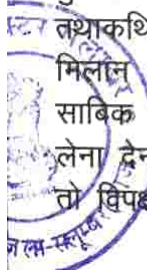 तथाकथि
मिलान
साबिक
लेना देन
तो विपक्ष